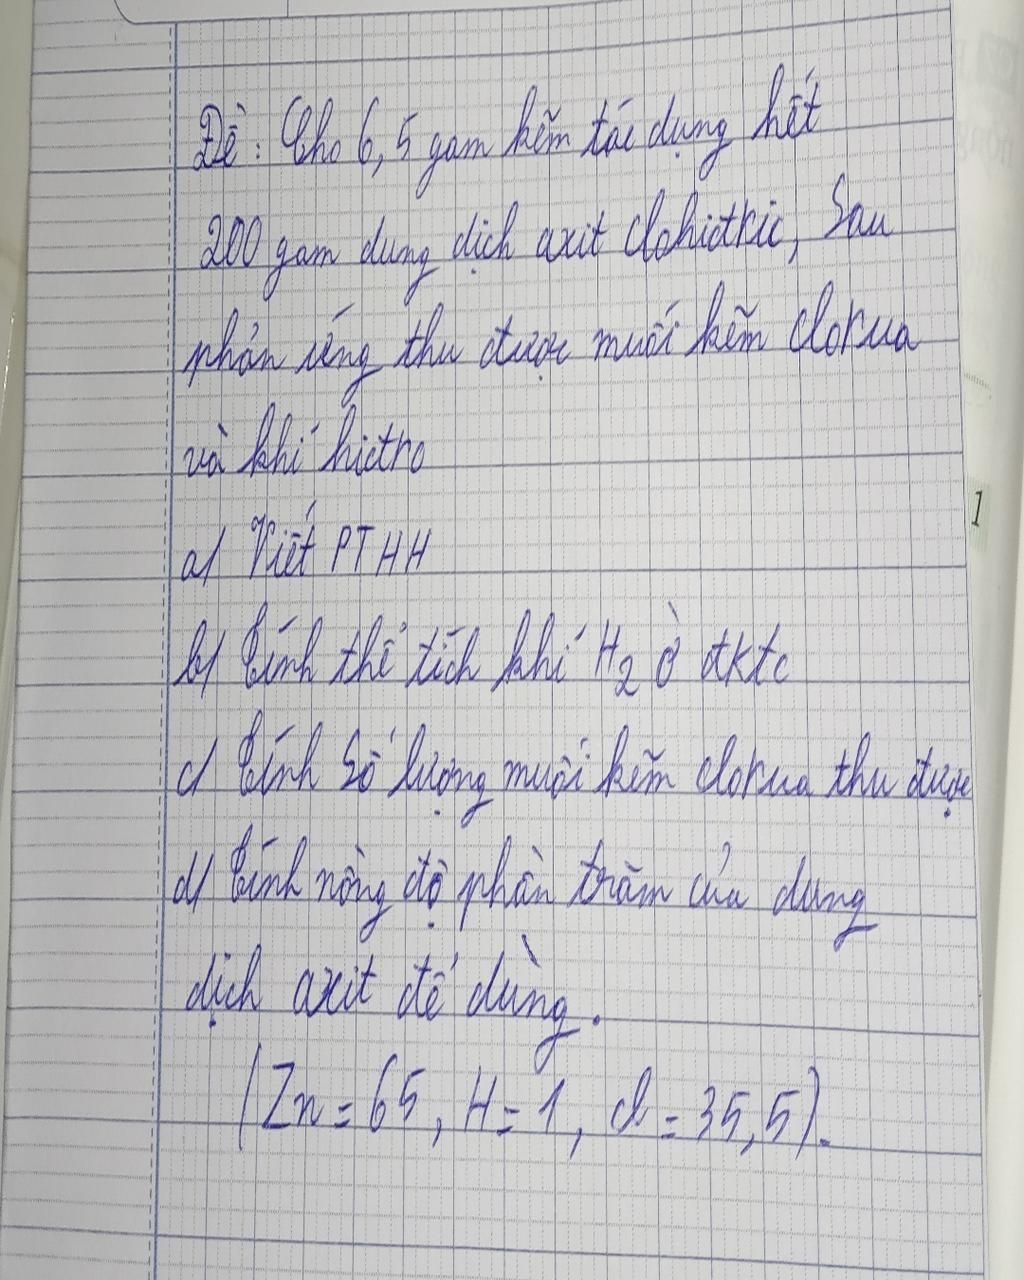 Đề: Cho 6,5 gam kẽm tác dụng hết
200 gam dung dịch axit clohiđric, Sau
phản ứng thu được muối kẽm clorua
và khí hiđro
a/ Viết PTHH
b/ Tính thể tích khí H₂ ở đktc
c/ Tính Số lượng muối kẽm clorua thu được
d/ Tính nồng độ phần trăm của dung
dịch axit để dùng.
(Zn = 65, H = 1, cl = 35,5).
1